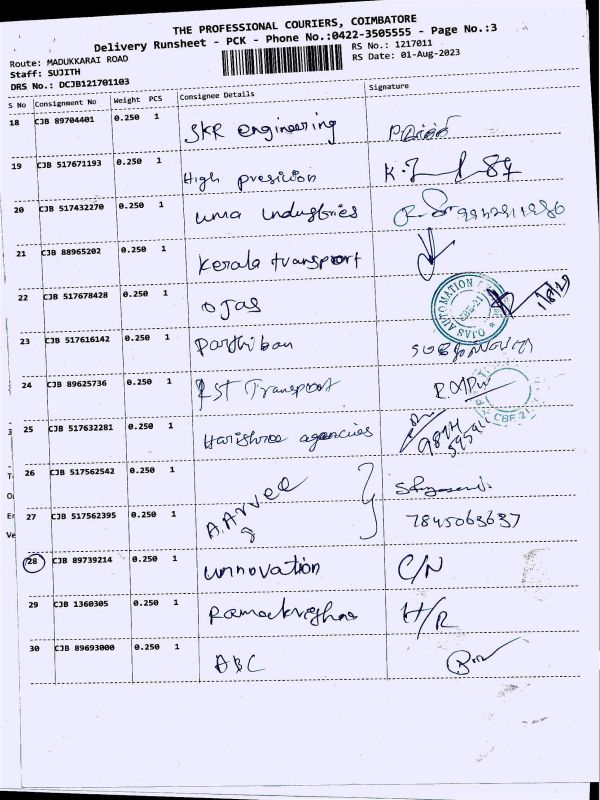 THE PROFESSIONAL COURIERS, COIMBATORE
Delivery Runsheet - PCK - Phone No.:0422-3505555 - Page No.:3
Route: MADUKKARAI ROAD
RS No.: 1217011
Staff: SUJITH
RS Date: 01-Aug-2023
DRS No.: DCJB121701103
S No Consignment No Weight PCS Consignee Details Signature
18 CJB 89704401 0.250 1 SKR engineering
19 CJB 517671193 0.250 1 High presision
20 CJB 517432270 0.250 1 uma industries
21 CJB 88965202 0.250 1 Kerala transport
22 CJB 517678428 0.250 1 OJAS
OJAS AUTOMATION
23 CJB 517616142 0.250 1 Parthiban
24 CJB 89625736 0.250 1 RST Transport
25 CJB 517632281 0.250 1 Harishree agencies
26 CJB 517562542 0.250 1 A.Arvee
27 CJB 517562395 0.250 1 7845063637
28 CJB 89739214 0.250 1 unnovation C/N
29 CJB 1360305 0.250 1 Ramakrishna H/R
30 CJB 89693000 0.250 1 ABC